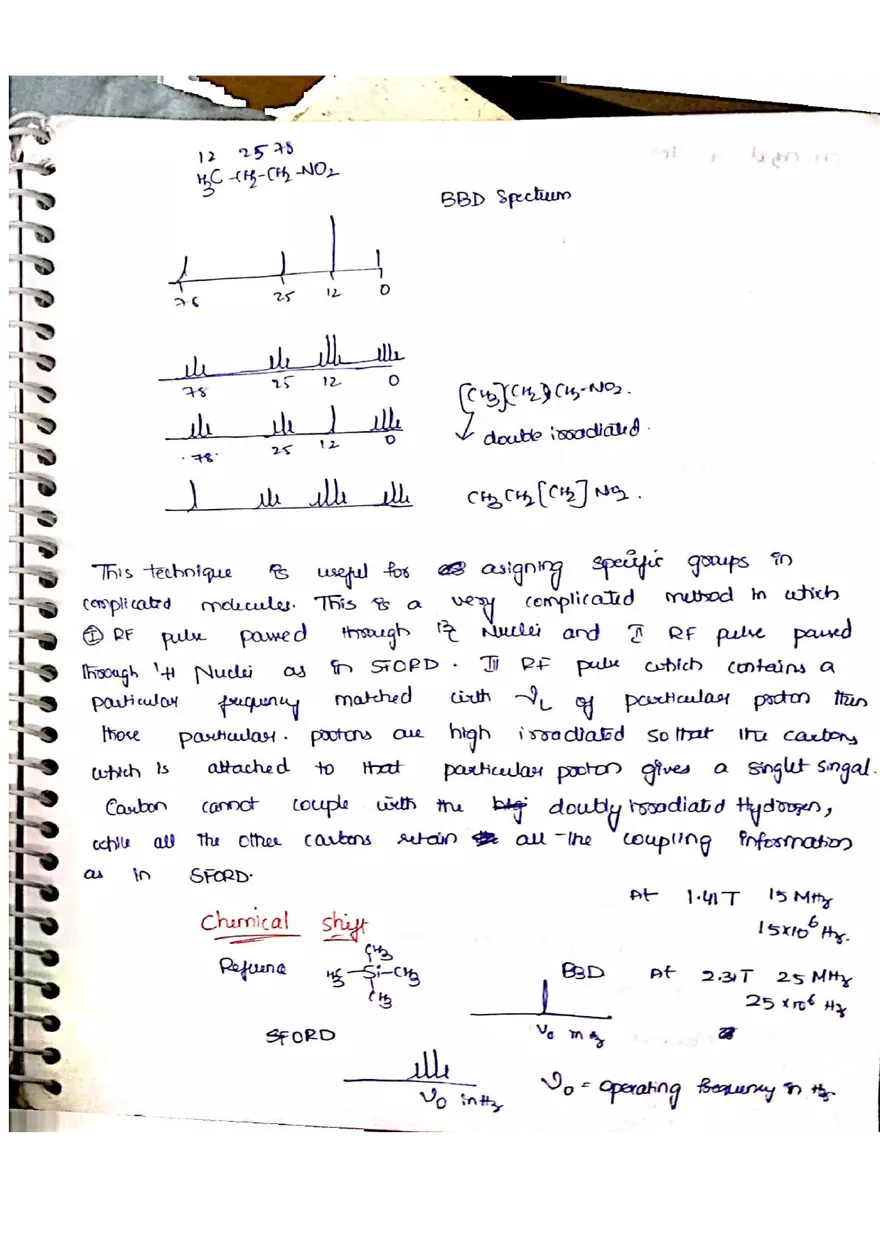 12 25 78
H3C-CH2-CH2-NO2
BBD Spectrum
76 25 12 0
78 25 12 0
[CH3](CH2)CH2-NO2.
double irradiated.
78. 25 12 0
CH3CH2[CH2]NO2.
This technique is useful for asigning specific groups in
complicated molecules. This is a very complicated method in which
I RF pulse passed through 13C Nuclei and II RF pulse passed
through 1H Nuclei as in SFORD. III RF pulse which contains a
particular frequency matched with νL of particular proton then
those particular. protons are high irradiated so that the carbons
which is attached to that particular proton gives a singlet singal.
Carbon cannot couple with the doubly irradiated Hydrogen,
while all the other carbons retain all the coupling information
as in SFORD.
At 1.41T 15 MHz
15x10^6 Hz.
Chemical shift
CH3
Refrence H3C-Si-CH3
CH3
BBD At 2.31T 25 MHz
25 x 10^6 Hz
ν0 in Hz
SFORD
ν0 in Hz
ν0 = Operating frequency in Hz.